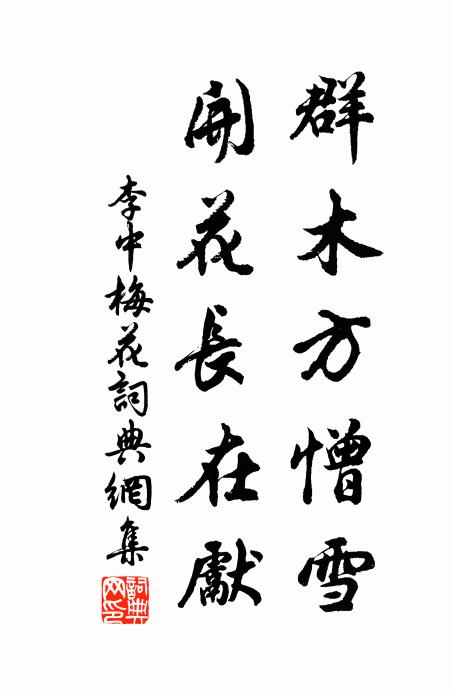 群木方憎雪
開花長在獻
李中梅花詞典網集
詞典網印